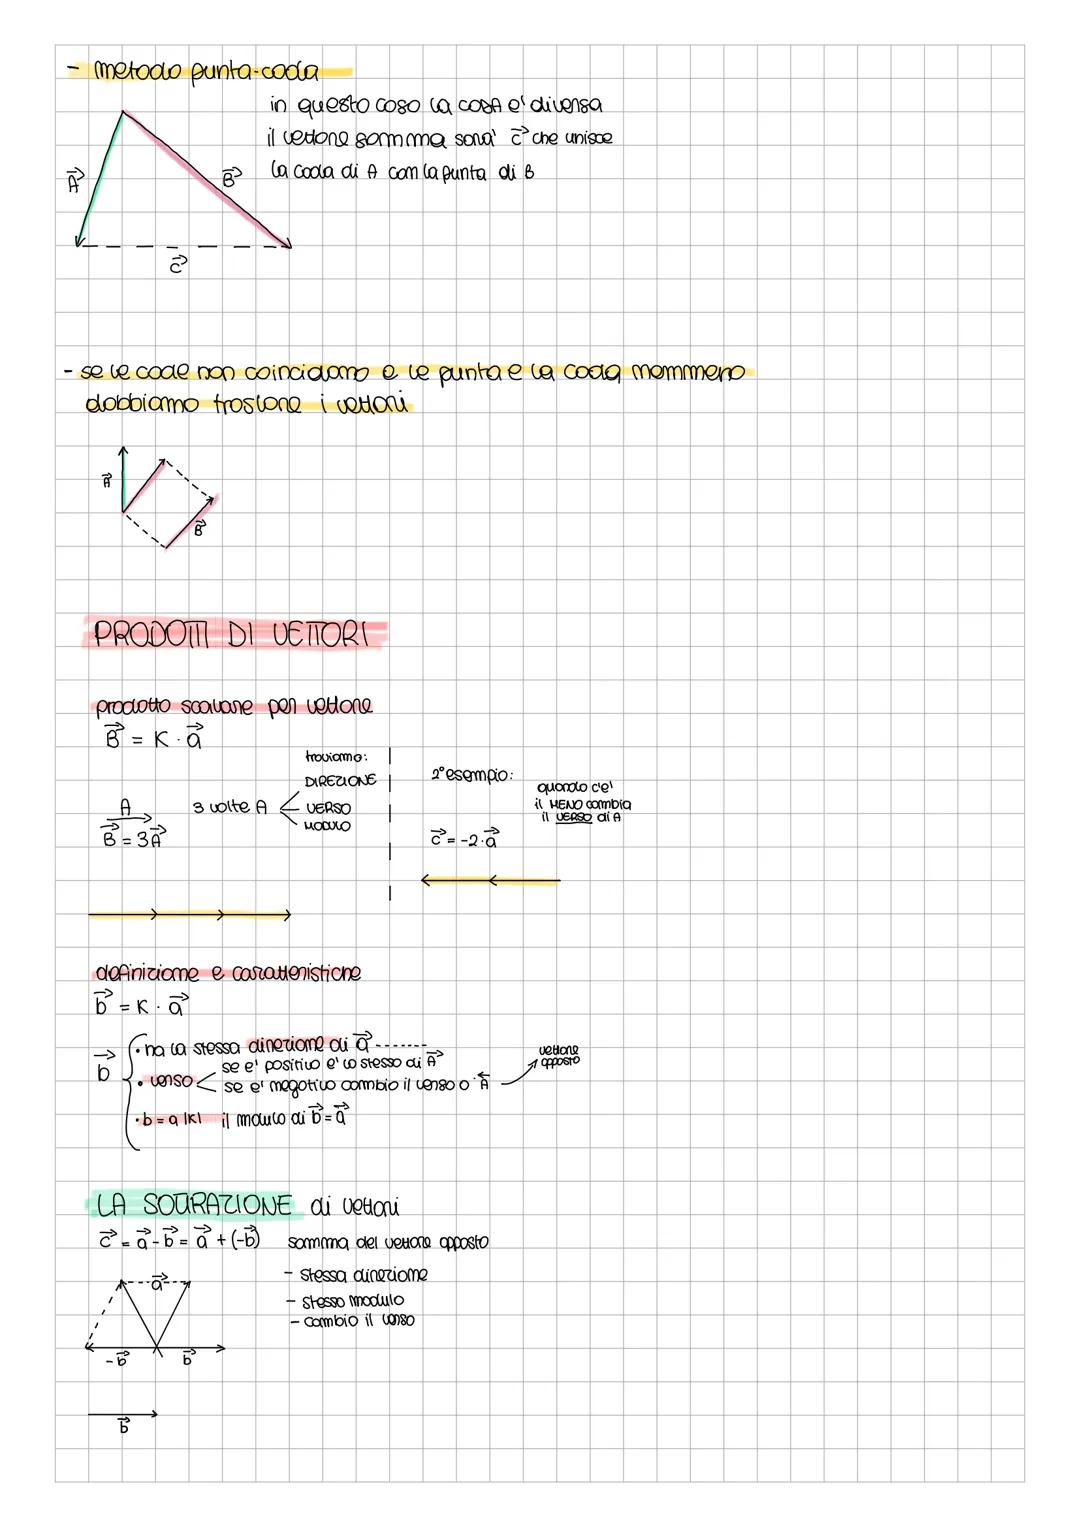 - metodo punta-coda
in questo caso la cosa e' diversa
il vettore somma sara' c⃗ che unisce
la coda di A con la punta di B
A⃗
B⃗
c⃗
- se le code non coincidono e le punta e la coda nemmeno
dobbiamo traslare i vettori
A⃗
B⃗
PRODOTTI DI VETTORI
prodotto scalare per vettore
B⃗ = K · a⃗
troviamo:
DIREZIONE
3 volte A
VERSO
MODULO
A
B⃗ = 3A⃗
2° esempio:
quando c'e'
il MENO cambia
il VERSO di A
c⃗ = -2·a⃗
definizione e caratteristiche
b⃗ = K · a⃗
b⃗
· ha la stessa direzione di a⃗
· verso
se e' positivo e' lo stesso di A⃗
se e' negativo cambio il verso o A⃖
vettore
opposto
· b = a |K| il modulo di b⃗ = a⃗
LA SOTTRAZIONE di vettori
c⃗ = a⃗ - b⃗ = a⃗ + (-b⃗) somma del vettore opposto
- stessa direzione
- stesso modulo
- cambio il verso
a⃗
-b⃗
b⃗
b⃗